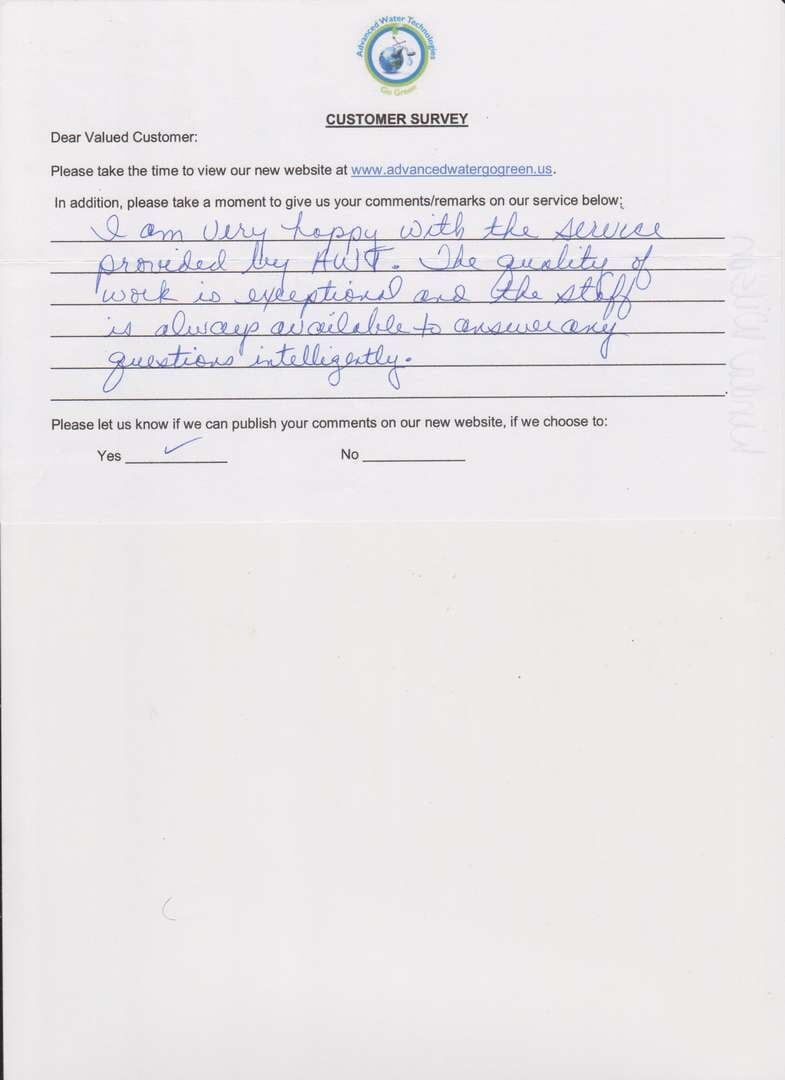 Advanced Water Technologies
Go Green
CUSTOMER SURVEY
Dear Valued Customer:
Please take the time to view our new website at www.advancedwatergogreen.us.
In addition, please take a moment to give us your comments/remarks on our service below:
I am very happy with the service
provided by AWT. The quality of
work is exceptional and the staff
is always available to answer any
questions intelligently.
Please let us know if we can publish your comments on our new website, if we choose to:
Yes ✓ No